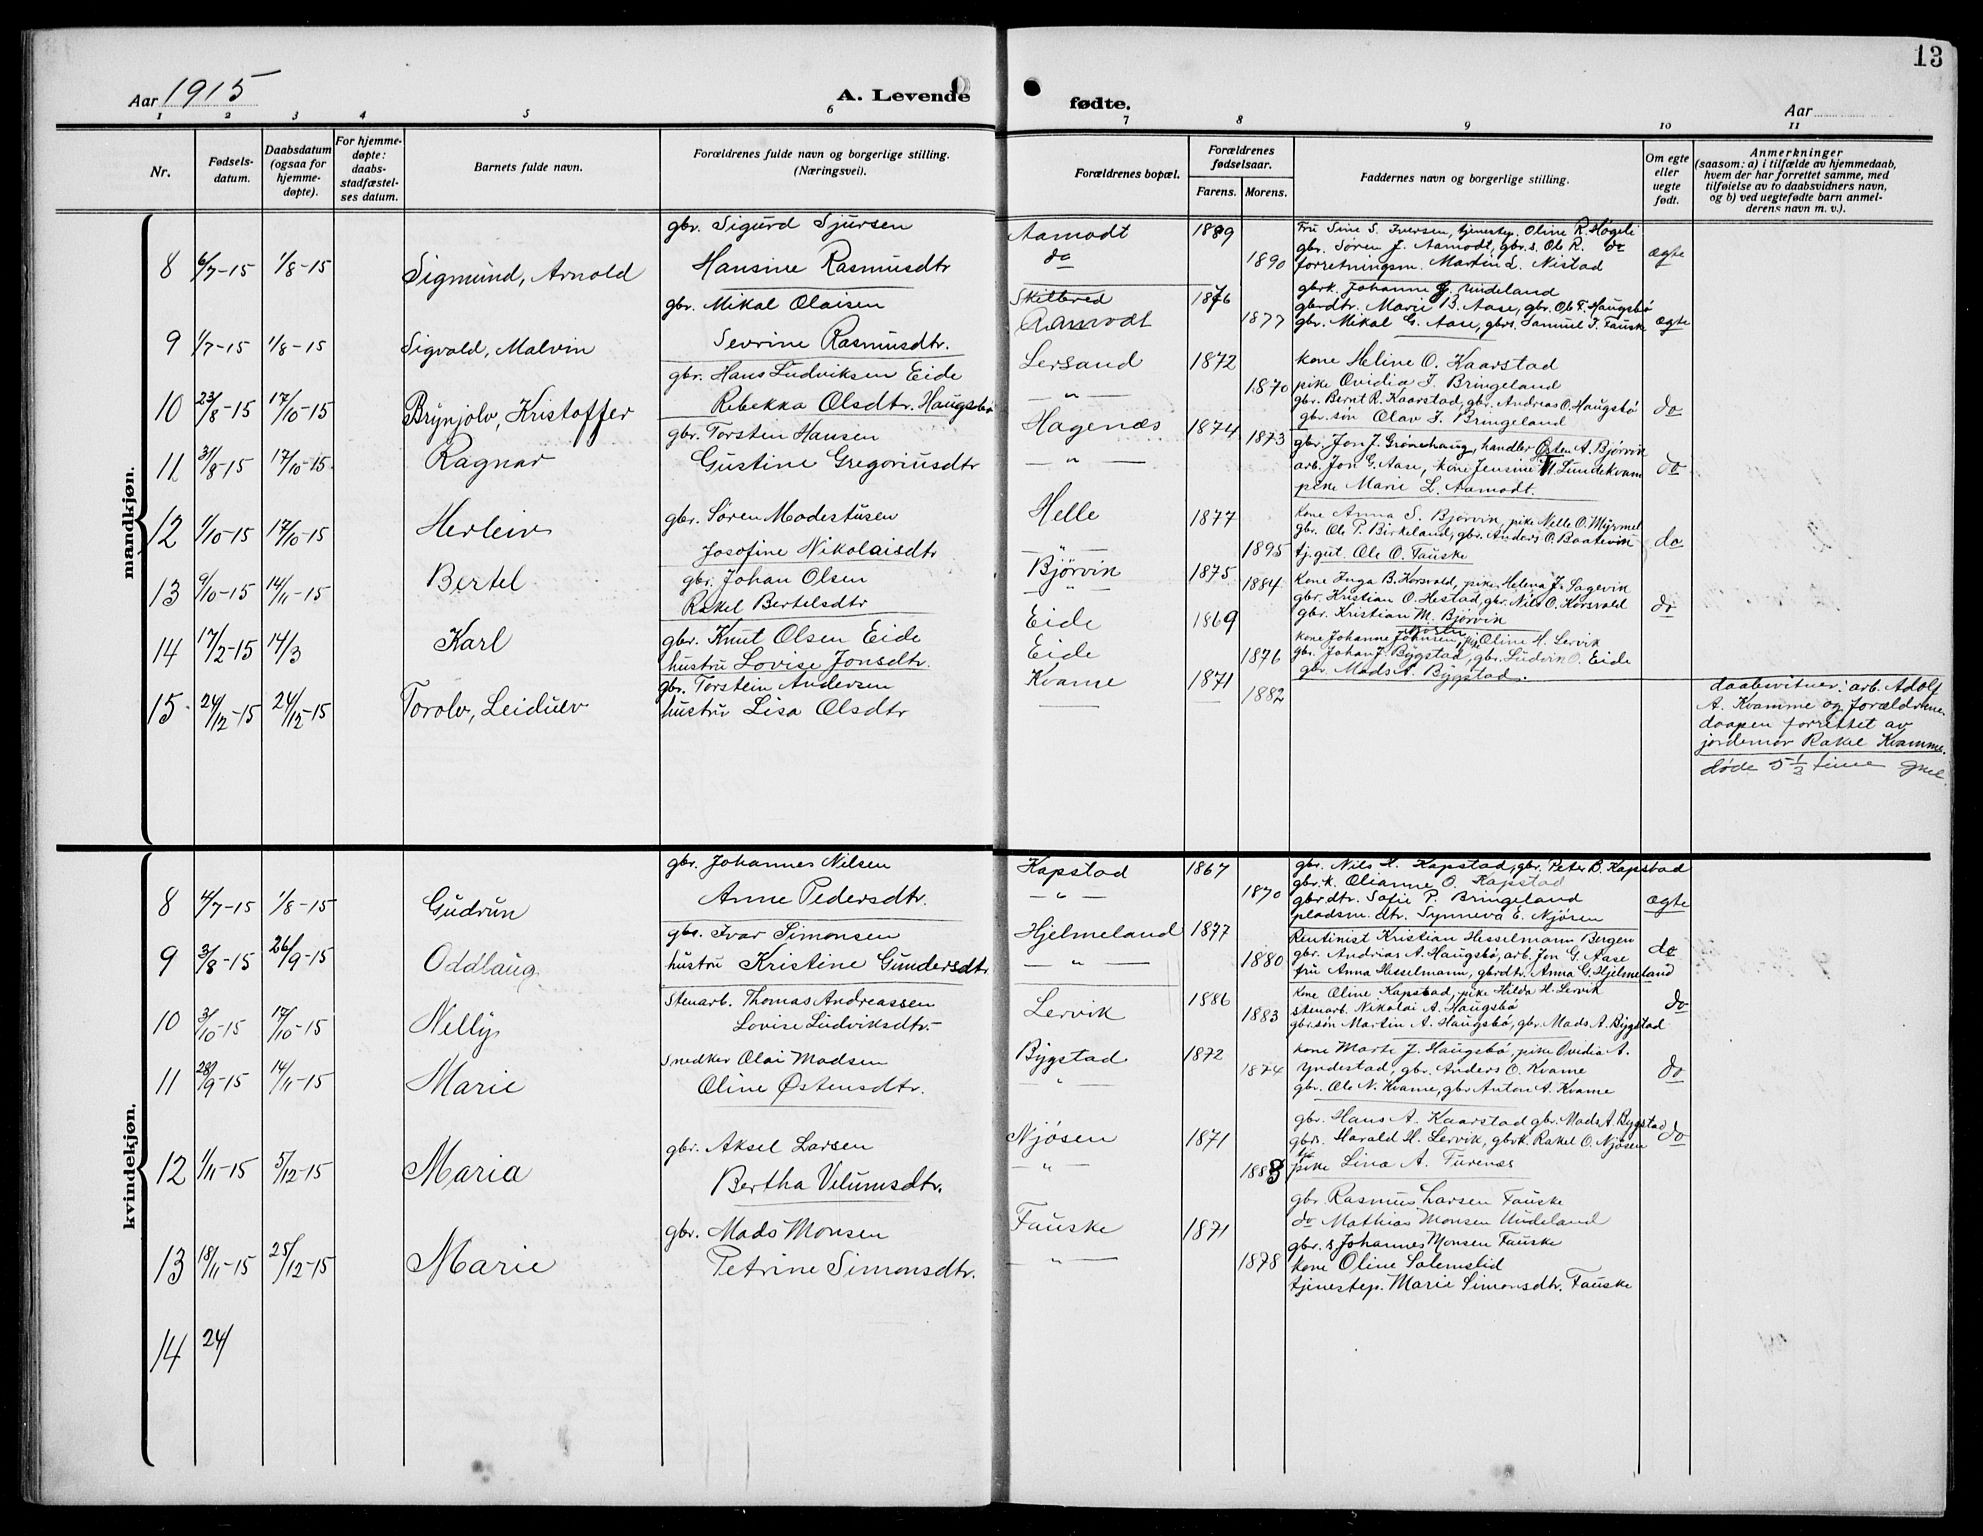 13
Aar 1915
A. Levende fødte.
Aar
1 2 3 4 5 6 7 8 9 10 11
Nr.
Fødsels-datum.
Daabsdatum (ogsaa for hjemme-døpte).
For hjemme-døpte: daabs-stadfæstel-ses datum.
Barnets fulde navn.
Forældrenes fulde navn og borgerlige stilling. (Næringsvei).
Forældrenes bopæl.
Forældrenes fødselsaar.
Farens. Morens.
Faddernes navn og borgerlige stilling.
Om egte eller uegte født.
Anmerkninger
(saasom: a) i tilfælde av hjemmedaab, hvem der har forrettet samme, med tilføielse av to daabsvidners navn, og b) ved uegtefødte barn anmel-derens navn m. v.).
mandkjøn.
8 6/7-15 1/8-15 Sigmund, Arnold
gbr. Sigurd Sjursen
Hansine Rasmusdtr
Aamodt
do
1889
1890
Fru Sine S. Iversen, tjenestp. Oline R. Høgeli
gbr. Søren J. Aamodt, gbr.s. Ole R. do
forretningsm. Martin L. Nistad
ægte
9 1/7-15 1/8-15 Sigvald, Malvin
gbr. Mikal Olaisen
Sevrine Rasmusdtr.
Skilbred
Aamodt
1876
1877
gbrk. Johanne G. Undeland
gbrdtr. Marie B. Aase, gbr. Ole F. Haugsbø
gbr. Mikal G. Aase, gbrs. Samuel I. Fauske
ægte
10 23/8-15 17/10-15 Brynjolv, Kristoffer
gbr. Hans Ludviksen Eide
Rebekka Olsdtr. Haugsbø
Lersand
— " —
1872
1870
kone Heline O. Kaarstad
pike Ovidia I. Bringeland
gbr. Bernt R. Kaarstad, gbr. Andreas O. Haugsbø
gbr. søn Olav I. Bringeland
do
11 31/8-15 17/10-15 Ragnar
gbr. Torsten Hansen
Gustine Gregoriusdtr
Hagenæs
— " —
1874
1873
gbr. Jon J. Grønehaug, handler Østen A. Bjørvik
arb. Jon G. Aase, kone Jensine M. Lundekvam
pike Marie L. Aamodt.
do
12 1/10-15 17/10-15 Herleiv
gbr. Søren Modestusen
Josofine Nikolaisdtr
Helle
— " —
1877
1895
kone Anna S. Bjørvin, pike Nelle O. Myrmel
gbr. Ole P. Birkeland, gbr. Anders O. Baatevik
tj.gut. Ole O. Fauske
do
13 9/10-15 14/11-15 Bertel
gbr. Johan Olsen
Rakel Bertelsdtr
Bjørvin
— " —
1875
1884
kone Inga B. Korsvold, pike Helena J. Sagevik
gbr. Kristian O. Hestad, gbr. Nils O. Korsvold
gbr. Kristian M. Bjørvin
do
14 17/2-15 14/3 Karl
gbr. Knut Olsen Eide
hustru Lovise Jonsdtr.
Eide
Eide
1869
1876
kone Johanne Johnsen, pike Oline H. Lervik
gbr. Johan J. Bygstad, gbr. Ludvik O. Eide
gbr. Mads A. Bygstad.
15 24/12-15 24/12-15 Torolv, Leidulv
gbr. Torstein Andersen
hustru Lisa Olsdtr
Kvame
1871
1882
daabsvitner: arb. Adolf
A. Kvamme og forældrene.
daapen forrettet av
jordemor Rakel Kvamme.
døde 5 1/2 time gml.
kvindekjøn.
8 4/7-15 1/8-15 Gudrun
gbr. Johannes Nilsen
Anne Pedersdtr.
Kapstad
— " —
1867
1870
gbr. Nils H. Kapstad, gbr. Peter B. Kapstad
gbr.k. Olianne O. Kapstad
gbrdtr. Sofie P. Bringeland
pladsm. dtr. Synneva E. Njøsen
ægte
9 3/8-15 26/9-15 Oddlaug
gbr. Ivar Simonsen
hustru Kristine Gundersdtr.
Hjelmeland
— " —
1877
1880
Rentinist Kristian Hesselmann Bergen
gbr. Andrias A. Haugsbø, arb. Jon G. Aase
fru Anna Hesselmann, gbrdtr. Anna G. Hjelmeland
do
10 3/10-15 17/10-15 Nelly
Stenarb. Thomas Andreassen
Lovise Ludviksdtr.
Lervik
1886
1883
kone Oline Kapstad, pike Hilda H. Lervik
stenarb. Nikolai A. Haugsbø
gbr.søn Martin A. Haugsbø, gbr. Mads A. Bygstad
do
11 28/9-15 14/11-15 Marie
Snedker Olai Madsen
Oline Østensdtr.
Bygstad
"
1872
1874
kone Marte J. Haugsbø, pike Ovidia A.
Yndestad, gbr. Anders O. Kvame
gbr. Ole N. Kvame, gbr Anton A. Kvame
do
12 1/11-15 5/12-15 Maria
gbr. Aksel Larsen
Bertha Vilumsdtr.
Njøsen
— " —
1871
1888
gbr. Hans A. Kaarstad gbr. Mads A. Bygstad
gbrs. Harald H. Lervik, gbrk. Rakel O. Njøsen
pike Lina A. Furenæs
do
13 18/11-15 25/12-15 Marie
gbr. Mads Monsen
Petrine Simonsdtr.
Fauske
— " —
1871
1878
gbr. Rasmus Larsen Fauske
do Mathias Monsen Undeland
gbr. s Johannes Monsen Fauske
kone Oline Solemslid
tjenestep. Marie Simonsdtr. Fauske
14 24/